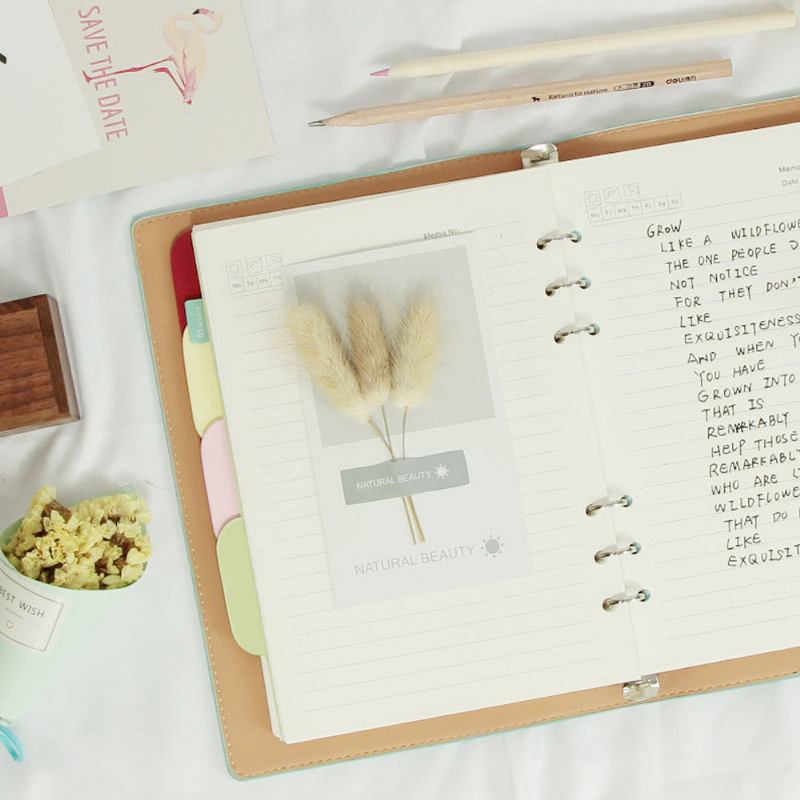 SAVE THE DATE
Return to nature 2B deli
Memo No.
Mo Tu We Th
01
NATURAL BEAUTY
NATURAL BEAUTY
BEST WISH
Memo
Date
Mo Tu We Th Fr Sa Su
GROW
LIKE A WILDFLOWE
THE ONE PEOPLE D
NOT NOTICE
FOR THEY DON'
LIKE
EXQUISITENESS
AND WHEN YO
YOU HAVE
GROWN INTO
THAT IS
REMARKABLY
HELP THOSE
REMARKABLY
WHO ARE
WILDFLOWE
THAT DO
LIKE
EXQUISIT